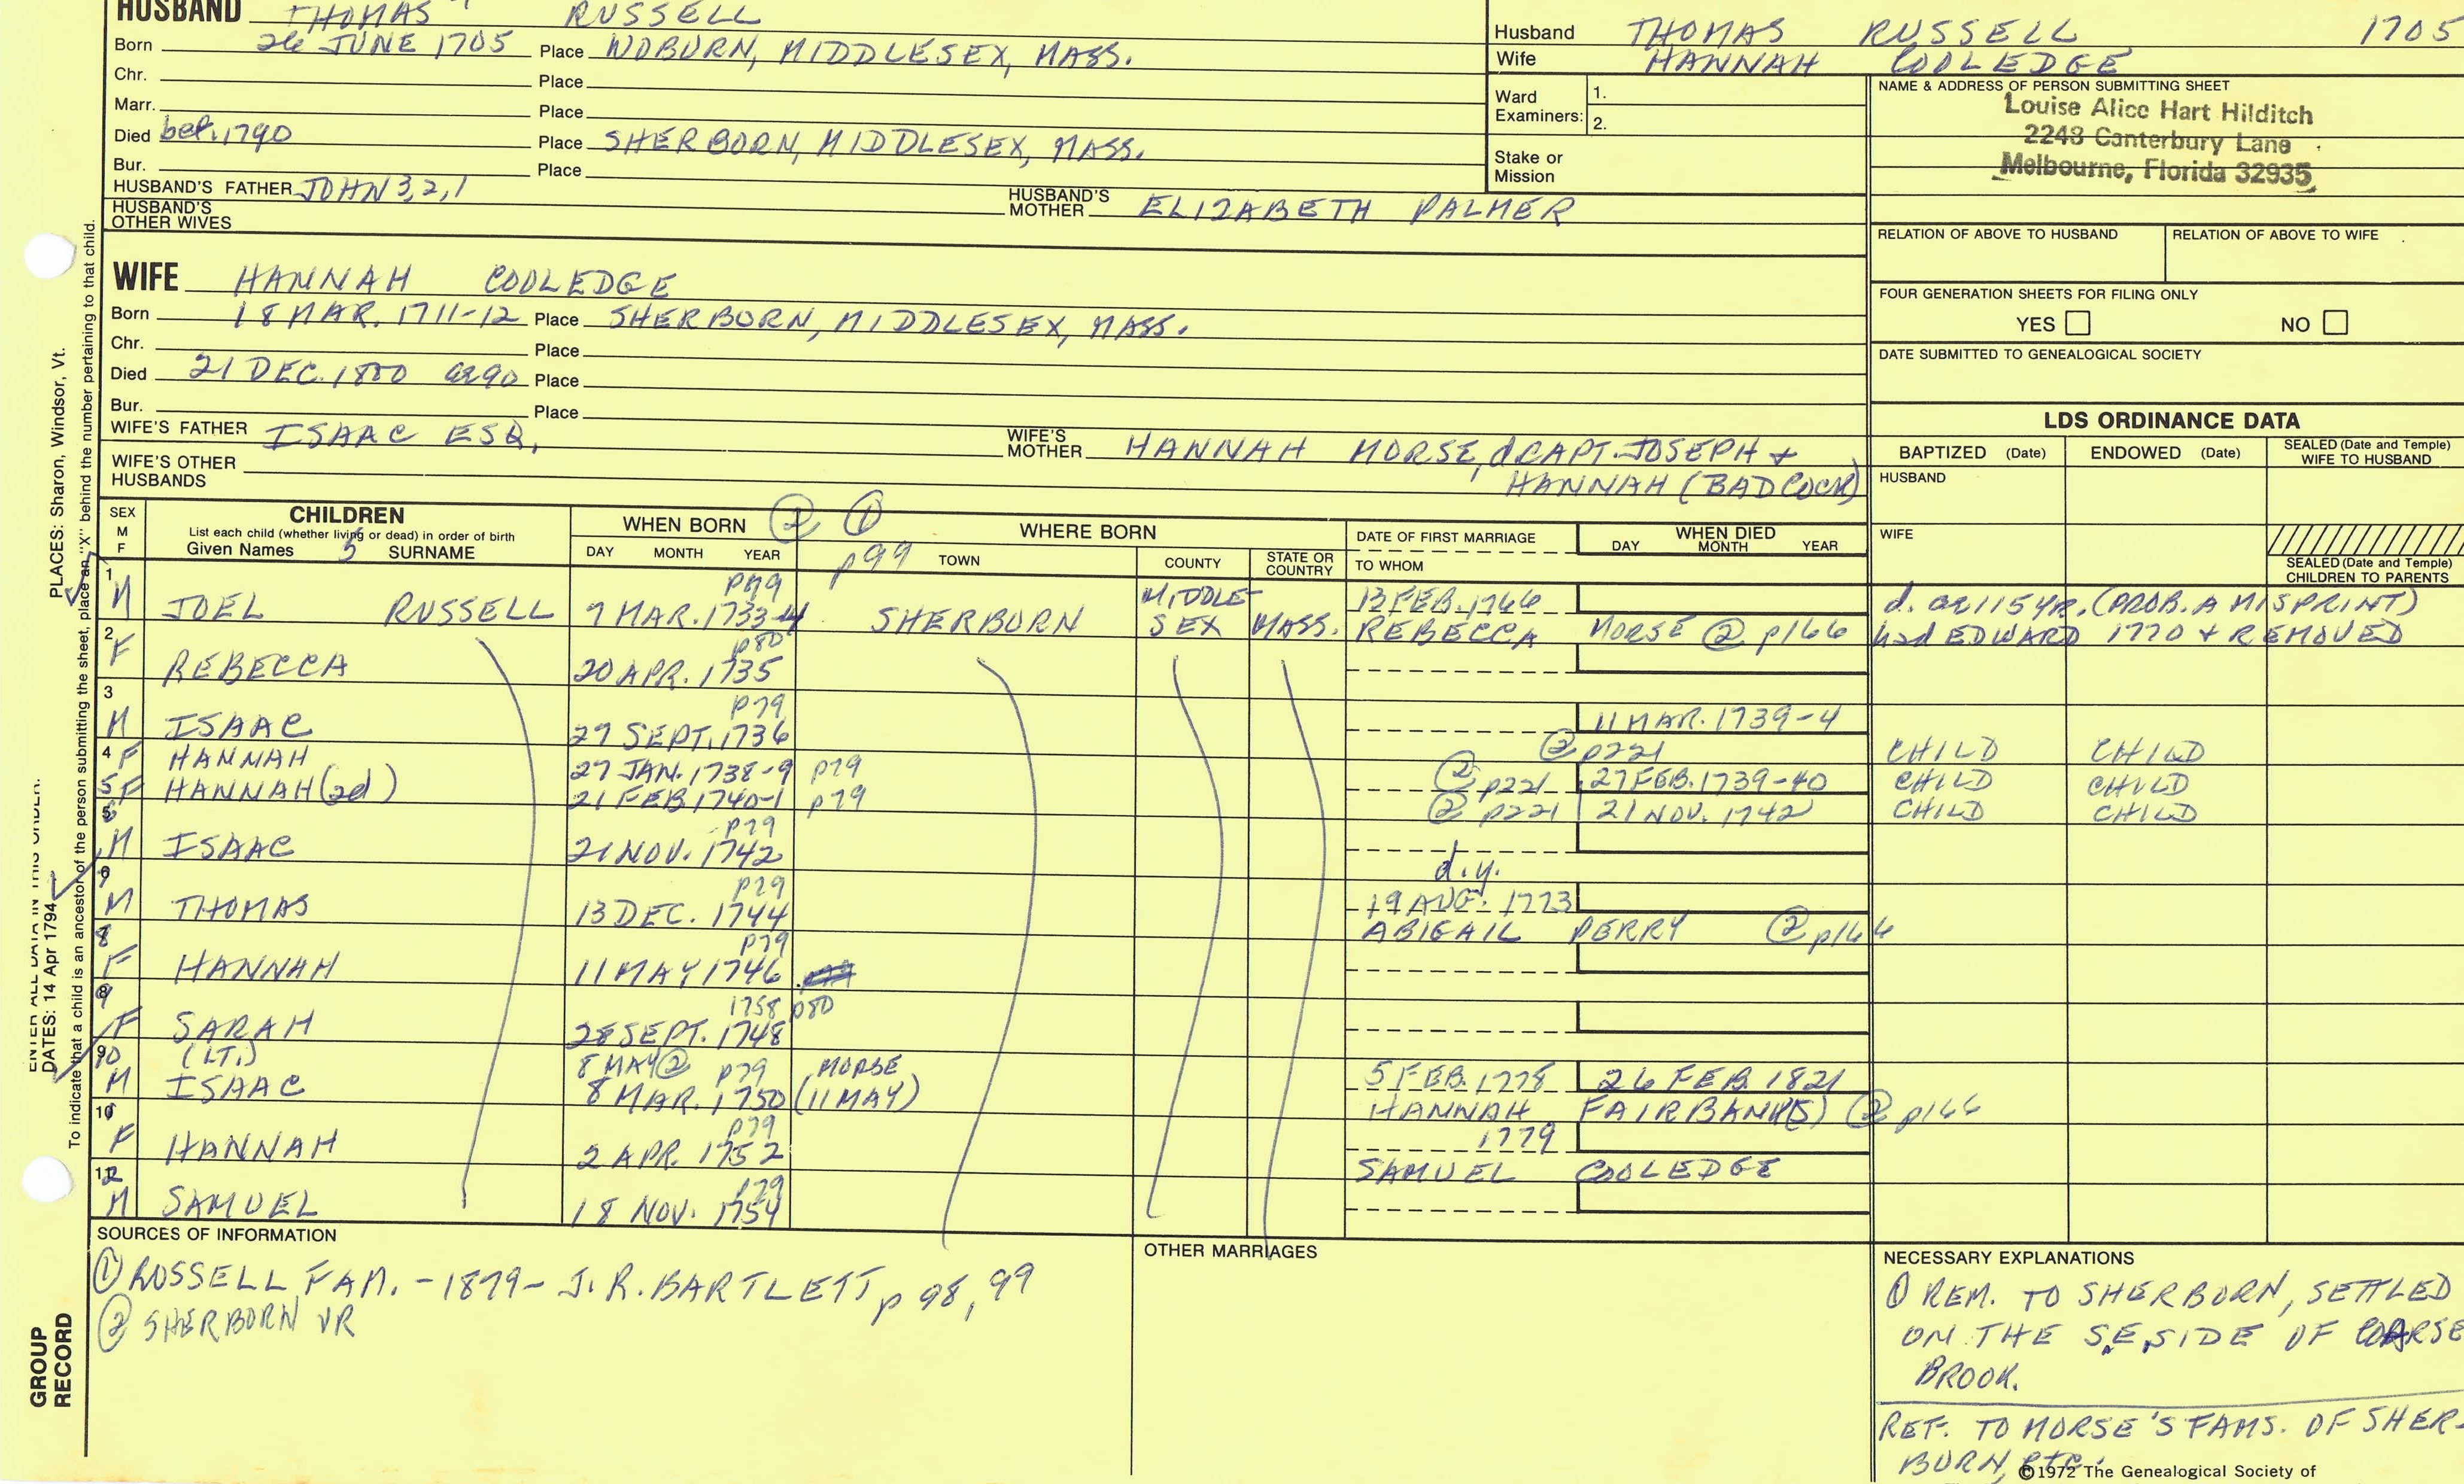 HUSBAND THOMAS RUSSELL
Born 26 JUNE 1705 Place WOBURN, MIDDLESEX, MASS.
Chr. Place
Marr. Place
Died bef. 1790 Place SHERBORN, MIDDLESEX, MASS.
Bur. Place
HUSBAND'S FATHER JOHN 3,2,1 HUSBAND'S MOTHER ELIZABETH PALMER
HUSBAND'S OTHER WIVES
Husband THOMAS RUSSELL 1705
Wife HANNAH COOLEDGE
Ward Examiners: 1.
2.
Stake or Mission
NAME & ADDRESS OF PERSON SUBMITTING SHEET
Louise Alice Hart Hilditch
2248 Canterbury Lane
Melbourne, Florida 32935
RELATION OF ABOVE TO HUSBAND RELATION OF ABOVE TO WIFE
FOUR GENERATION SHEETS FOR FILING ONLY
YES NO
DATE SUBMITTED TO GENEALOGICAL SOCIETY
WIFE HANNAH COOLEDGE
Born 18 MAR. 1711-12 Place SHERBORN, MIDDLESEX, MASS.
Chr. Place
Died 21 DEC. 1800 ae90 Place
Bur. Place
WIFE'S FATHER ISAAC ESQ. WIFE'S MOTHER HANNAH MORSE, d CAPT. JOSEPH +
HANNAH (BADCOCK)
WIFE'S OTHER HUSBANDS
LDS ORDINANCE DATA
BAPTIZED (Date) ENDOWED (Date) SEALED (Date and Temple) WIFE TO HUSBAND
HUSBAND
WIFE
SEALED (Date and Temple) CHILDREN TO PARENTS
SEX M F CHILDREN WHEN BORN ② ① WHERE BORN DATE OF FIRST MARRIAGE WHEN DIED
List each child (whether living or dead) in order of birth
Given Names 5 SURNAME DAY MONTH YEAR p99 TOWN COUNTY STATE OR COUNTRY TO WHOM DAY MONTH YEAR
1 M JOEL RUSSELL p79 7 MAR. 1733-4 SHERBORN MIDDLE-SEX MASS. 13 FEB. 1766
REBECCA MORSE ② p166
d. ae 115 yr. (PROB. A MISPRINT)
had EDWARD 1770 + REMOVED
2 F REBECCA p80 20 APR. 1735
3 M ISAAC p79 27 SEPT. 1736 11 MAR. 1739-4
② p221 CHILD CHILD
4 F HANNAH 27 JAN. 1738-9 p79 ② p221 27 FEB. 1739-40 CHILD CHILD
5 F HANNAH (2d) 21 FEB 1740-1 p79 ② p221 21 NOV. 1742 CHILD CHILD
M ISAAC p79 21 NOV. 1742 d.y.
M THOMAS p79 13 DEC. 1744 19 AUG. 1773
ABIGAIL PERRY ② p166
8 F HANNAH p79 11 MAY 1746
9 F SARAH 1758 p80 28 SEPT. 1748
10 M (LT.) ISAAC 8 MAY ② p79 MORSE
8 MAR. 1750 (11 MAY) 5 FEB. 1778 26 FEB. 1821
HANNAH FAIRBANK(S) ② p166
F HANNAH p79 2 APR. 1752 1779
SAMUEL COOLEDGE
12 M SAMUEL p79 18 NOV. 1754
SOURCES OF INFORMATION
① RUSSELL FAM. - 1879 - J.R. BARTLETT, p 98, 99
② SHERBORN VR
OTHER MARRIAGES
NECESSARY EXPLANATIONS
① REM. TO SHERBORN, SETTLED
ON THE SE. SIDE OF COARSE
BROOK.
REF. TO MORSE'S FAMS. OF SHER-
BORN, etc.
©1972 The Genealogical Society of
ENTER ALL DATA IN THIS ORDER:
DATES: 14 Apr 1794
PLACES: Sharon, Windsor, Vt.
To indicate that a child is an ancestor of the person submitting the sheet, place an "X" behind the number pertaining to that child.
GROUP RECORD